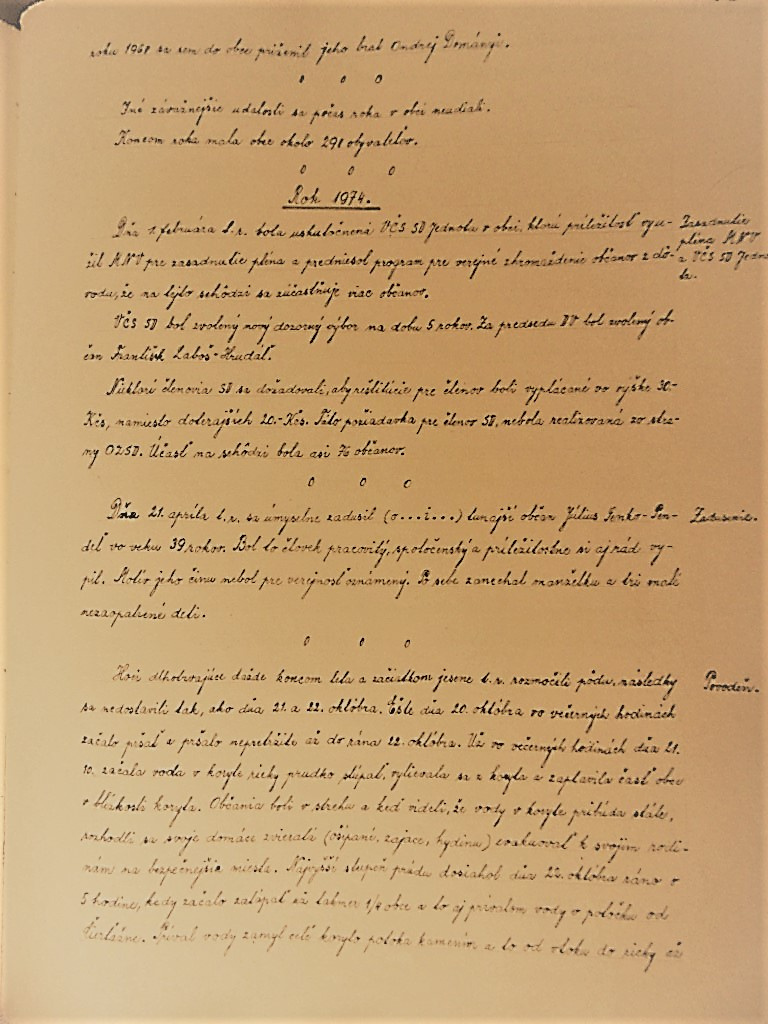 roku 1968 sa sem do obce priženil jeho brat Ondrej Dományi.
o o o
Iné závažnejšie udalosti sa počas roka v obci neudiali.
Koncom roka mala obec okolo 298 obyvateľov.
o o o
Rok 1974.
Dňa 1. februára t. r. bola uskutočnená VČS SD Jednota v obci, ktorú príležitosť vyu-
žil MNV pre zasadnutie pléna a predniesol program pre verejné zhromaždenie občanov z dô-
vodu, že na tejto schôdzi sa zúčastňuje viac občanov.
Zasadnutie
pléna MNV
a VČS SD Jedno
ta.
VČS SD bol zvolený nový dozorný výbor na dobu 5 rokov. Za predsedu DV bol zvolený ob-
čan František Laboš-Hrudáľ.
Niektorí členovia SD sa dožadovali, aby reštitúcie pre členov boli vyplácané vo výške 30.-
Kčs, namiesto doterajších 20.-Kčs. Táto požiadavka pre členov SD, nebola realizovaná zo stra-
ny OZSD. Účasť na schôdzi bola asi 70 občanov.
o o o
Dňa 21. apríla t. r. sa úmyselne zadusil (o...i...) tunajší občan Július Fenko-Pen-
deľ vo veku 39 rokov. Bol to človek pracovitý, spoločenský a príležitostne si aj rád vy-
pil. Motív jeho činu nebol pre verejnosť oznámený. Po sebe zanechal manželku a tri malé
nezaopatrené deti.
Zadusenie.
o o o
Hoci dlhotrvajúce dažde koncom leta a začiatkom jesene t. r. rozmočili pôdu, následky
sa nedostavili tak, ako dňa 21. a 22. októbra. Ešte dňa 20. októbra vo večerných hodinách
začalo pršať a pršalo nepretržite až do rána 22. októbra. Už vo večerných hodinách dňa 21.
10. začala voda v koryte rieky prudko stúpať, vylievala sa z koryta a zaplavila časť obce
v blízkosti koryta. Občania boli v strehu a keď videli, že vody v koryte pribúda stále,
rozhodli sa svoje domáce zvieratá (ošípané, zajace, hydinu) evakuovať k svojim rodi-
nám na bezpečnejšie miesta. Najvyšší stupeň prúdu dosiahol dňa 22. októbra ráno o
5 hodine, kedy začalo zatápať už takmer 1/4 obce a to aj prívalom vody v potôčku od
Príval vody zamyl celé koryto potoka kamením a to od vtoku do rieky až
Povodeň.